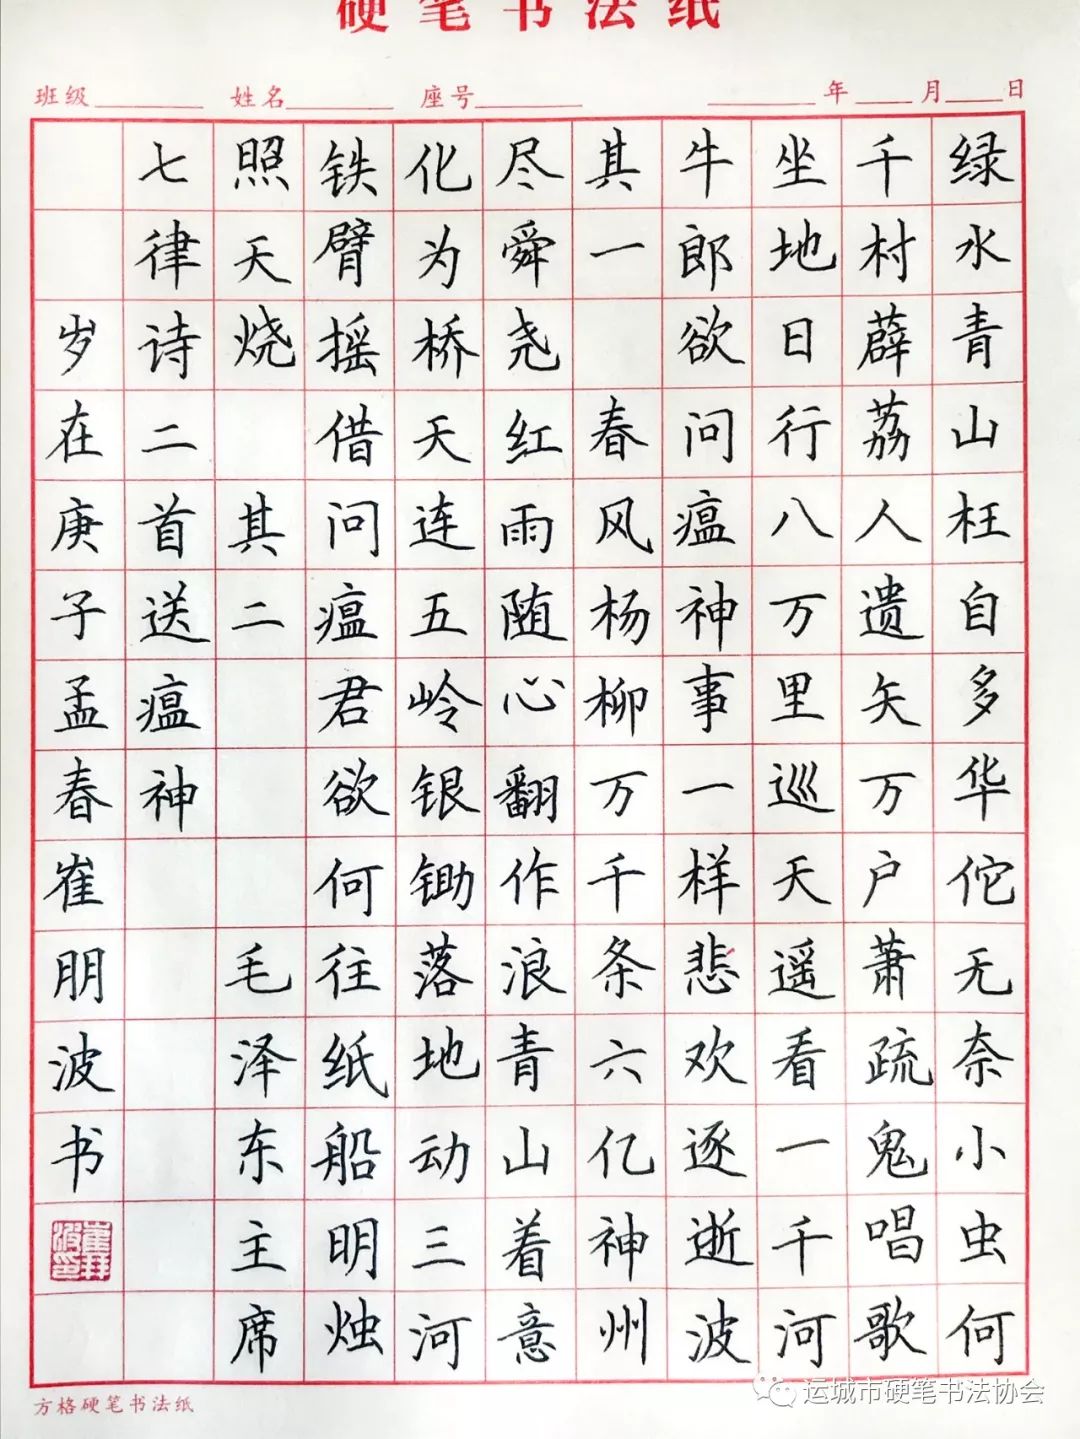 硬笔书法纸
班级 姓名 座号 年 月 日
绿水青山枉自多华佗无奈小虫何
千村薜荔人遗矢万户萧疏鬼唱歌
坐地日行八万里巡天遥看一千河
牛郎欲问瘟神事一样悲欢逐逝波
其一 春风杨柳万千条六亿神州
尽舜尧红雨随心翻作浪青山着意
化为桥天连五岭银锄落地动三河
铁臂摇借问瘟君欲何往纸船明烛
照天烧 其二 毛泽东主席
七律诗二首送瘟神
岁在庚子孟春崔朋波书
崔朋波印
方格硬笔书法纸
运城市硬笔书法协会